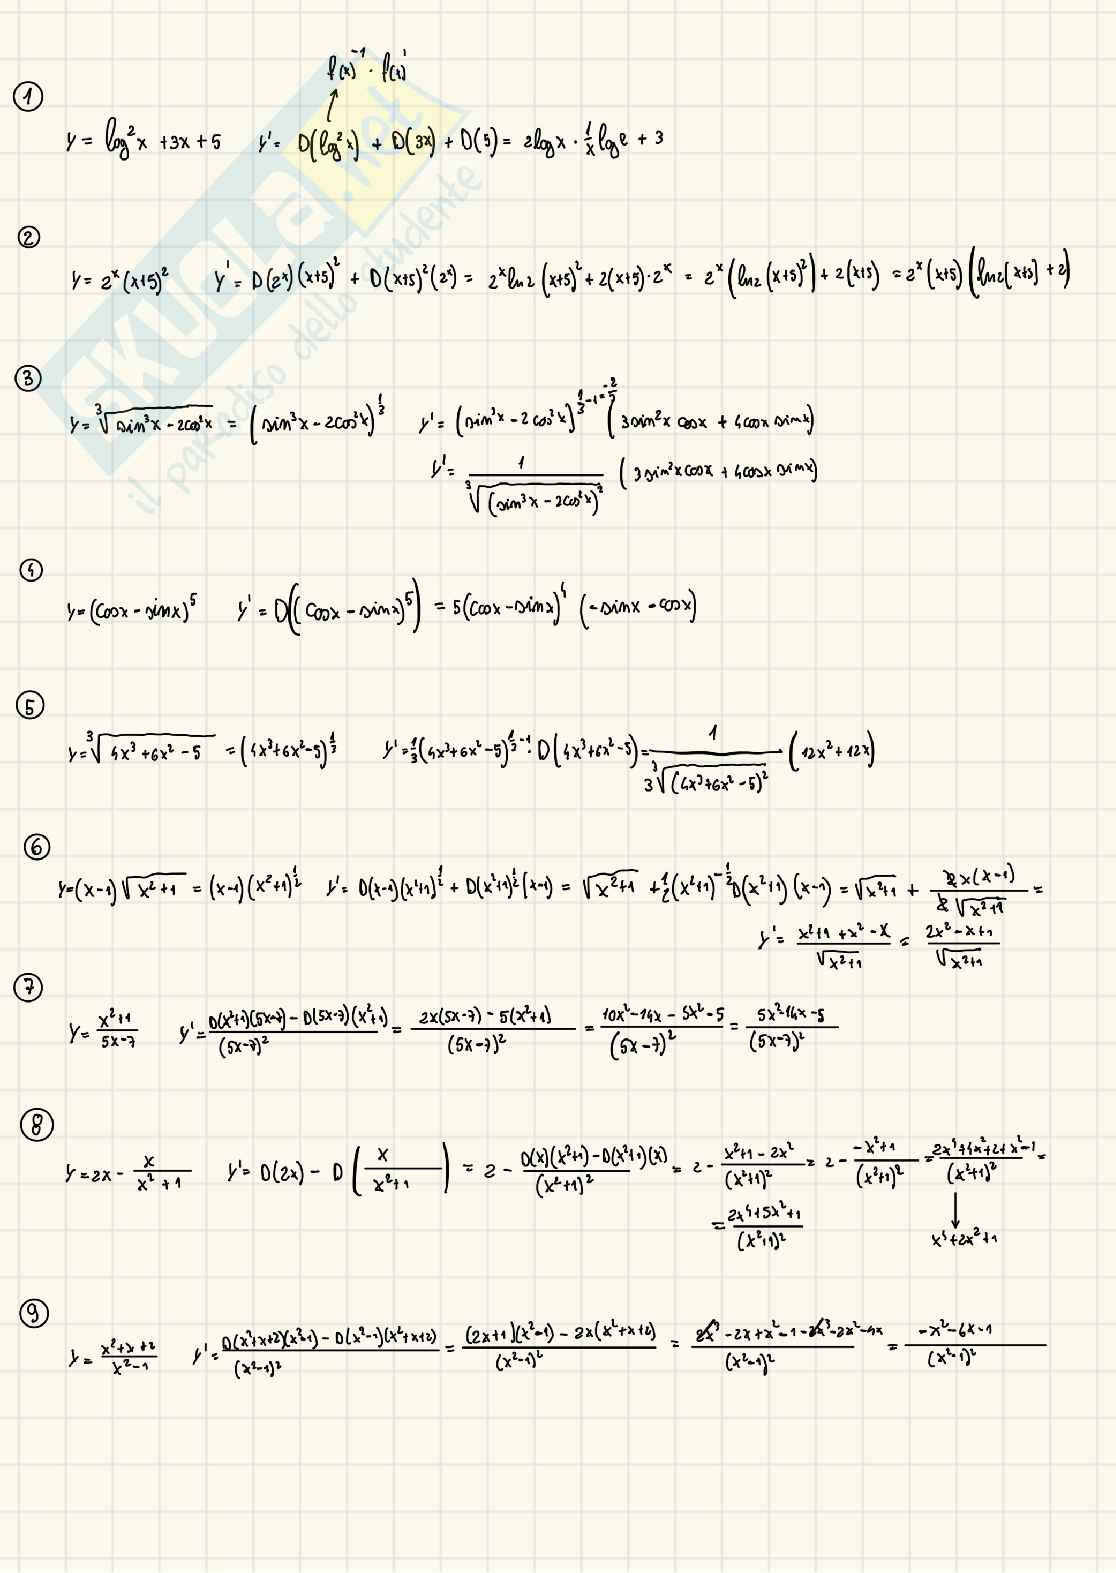 f(x)⁻¹ · f(x)'
①
y = log²x + 3x + 5 y' = D(log²x) + D(3x) + D(5) = 2logx · 1/x loge + 3
②
y = 2ˣ(x+5)² y' = D(2ˣ)(x+5)² + D(x+5)²(2ˣ) = 2ˣln2 (x+5)² + 2(x+5)·2ˣ = 2ˣ(ln2(x+5)²) + 2(x+5) = 2ˣ(x+5)(ln2(x+5) + 2)
③
y = ³√(sin³x - 2cos²x) = (sin³x - 2cos²x)^(1/3) y' = (sin³x - 2cos²x)^(1/3 - 1 = -2/3) (3sin²x cosx + 4cosx sinx)
y' = 1/³√((sin³x - 2cos²x)²) (3sin²x cosx + 4cosx sinx)
④
y = (cosx - sinx)⁵ y' = D((cosx - sinx)⁵) = 5(cosx - sinx)⁴ (-sinx - cosx)
⑤
y = ³√(4x³ + 6x² - 5) = (4x³+6x²-5)^(1/3) y' = 1/3(4x³+6x²-5)^(1/3 - 1) · D(4x³+6x²-5) = 1/(3 ³√((4x³+6x²-5)²)) (12x² + 12x)
⑥
y = (x-1)√(x²+1) = (x-1)(x²+1)^(1/2) y' = D(x-1)(x²+1)^(1/2) + D(x²+1)^(1/2)(x-1) = √(x²+1) + 1/2(x²+1)^(-1/2) D(x²+1)(x-1) = √(x²+1) + 2x(x-1)/(2√(x²+1)) =
y' = (x²+1+x²-x)/√(x²+1) = (2x²-x+1)/√(x²+1)
⑦
y = (x²+1)/(5x-7) y' = (D(x²+1)(5x-7) - D(5x-7)(x²+1))/(5x-7)² = (2x(5x-7) - 5(x²+1))/(5x-7)² = (10x²-14x-5x²-5)/(5x-7)² = (5x²-14x-5)/(5x-7)²
⑧
y = 2x - x/(x²+1) y' = D(2x) - D(x/(x²+1)) = 2 - (D(x)(x²+1) - D(x²+1)(x))/(x²+1)² = 2 - (x²+1-2x²)/(x²+1)² = 2 - (-x²+1)/(x²+1)² = (2x⁴+4x²+2+x²-1)/(x²+1)² =
= (2x⁴+5x²+1)/(x²+1)² x⁴+2x²+1
⑨
y = (x²+x+2)/(x²-1) y' = (D(x²+x+2)(x²-1) - D(x²-1)(x²+x+2))/(x²-1)² = ((2x+1)(x²-1) - 2x(x²+x+2))/(x²-1)² = (2x³-2x+x²-1-2x³-2x²-4x)/(x²-1)² = (-x²-6x-1)/(x²-1)²
SKUOLA.net
il paradiso dello studente